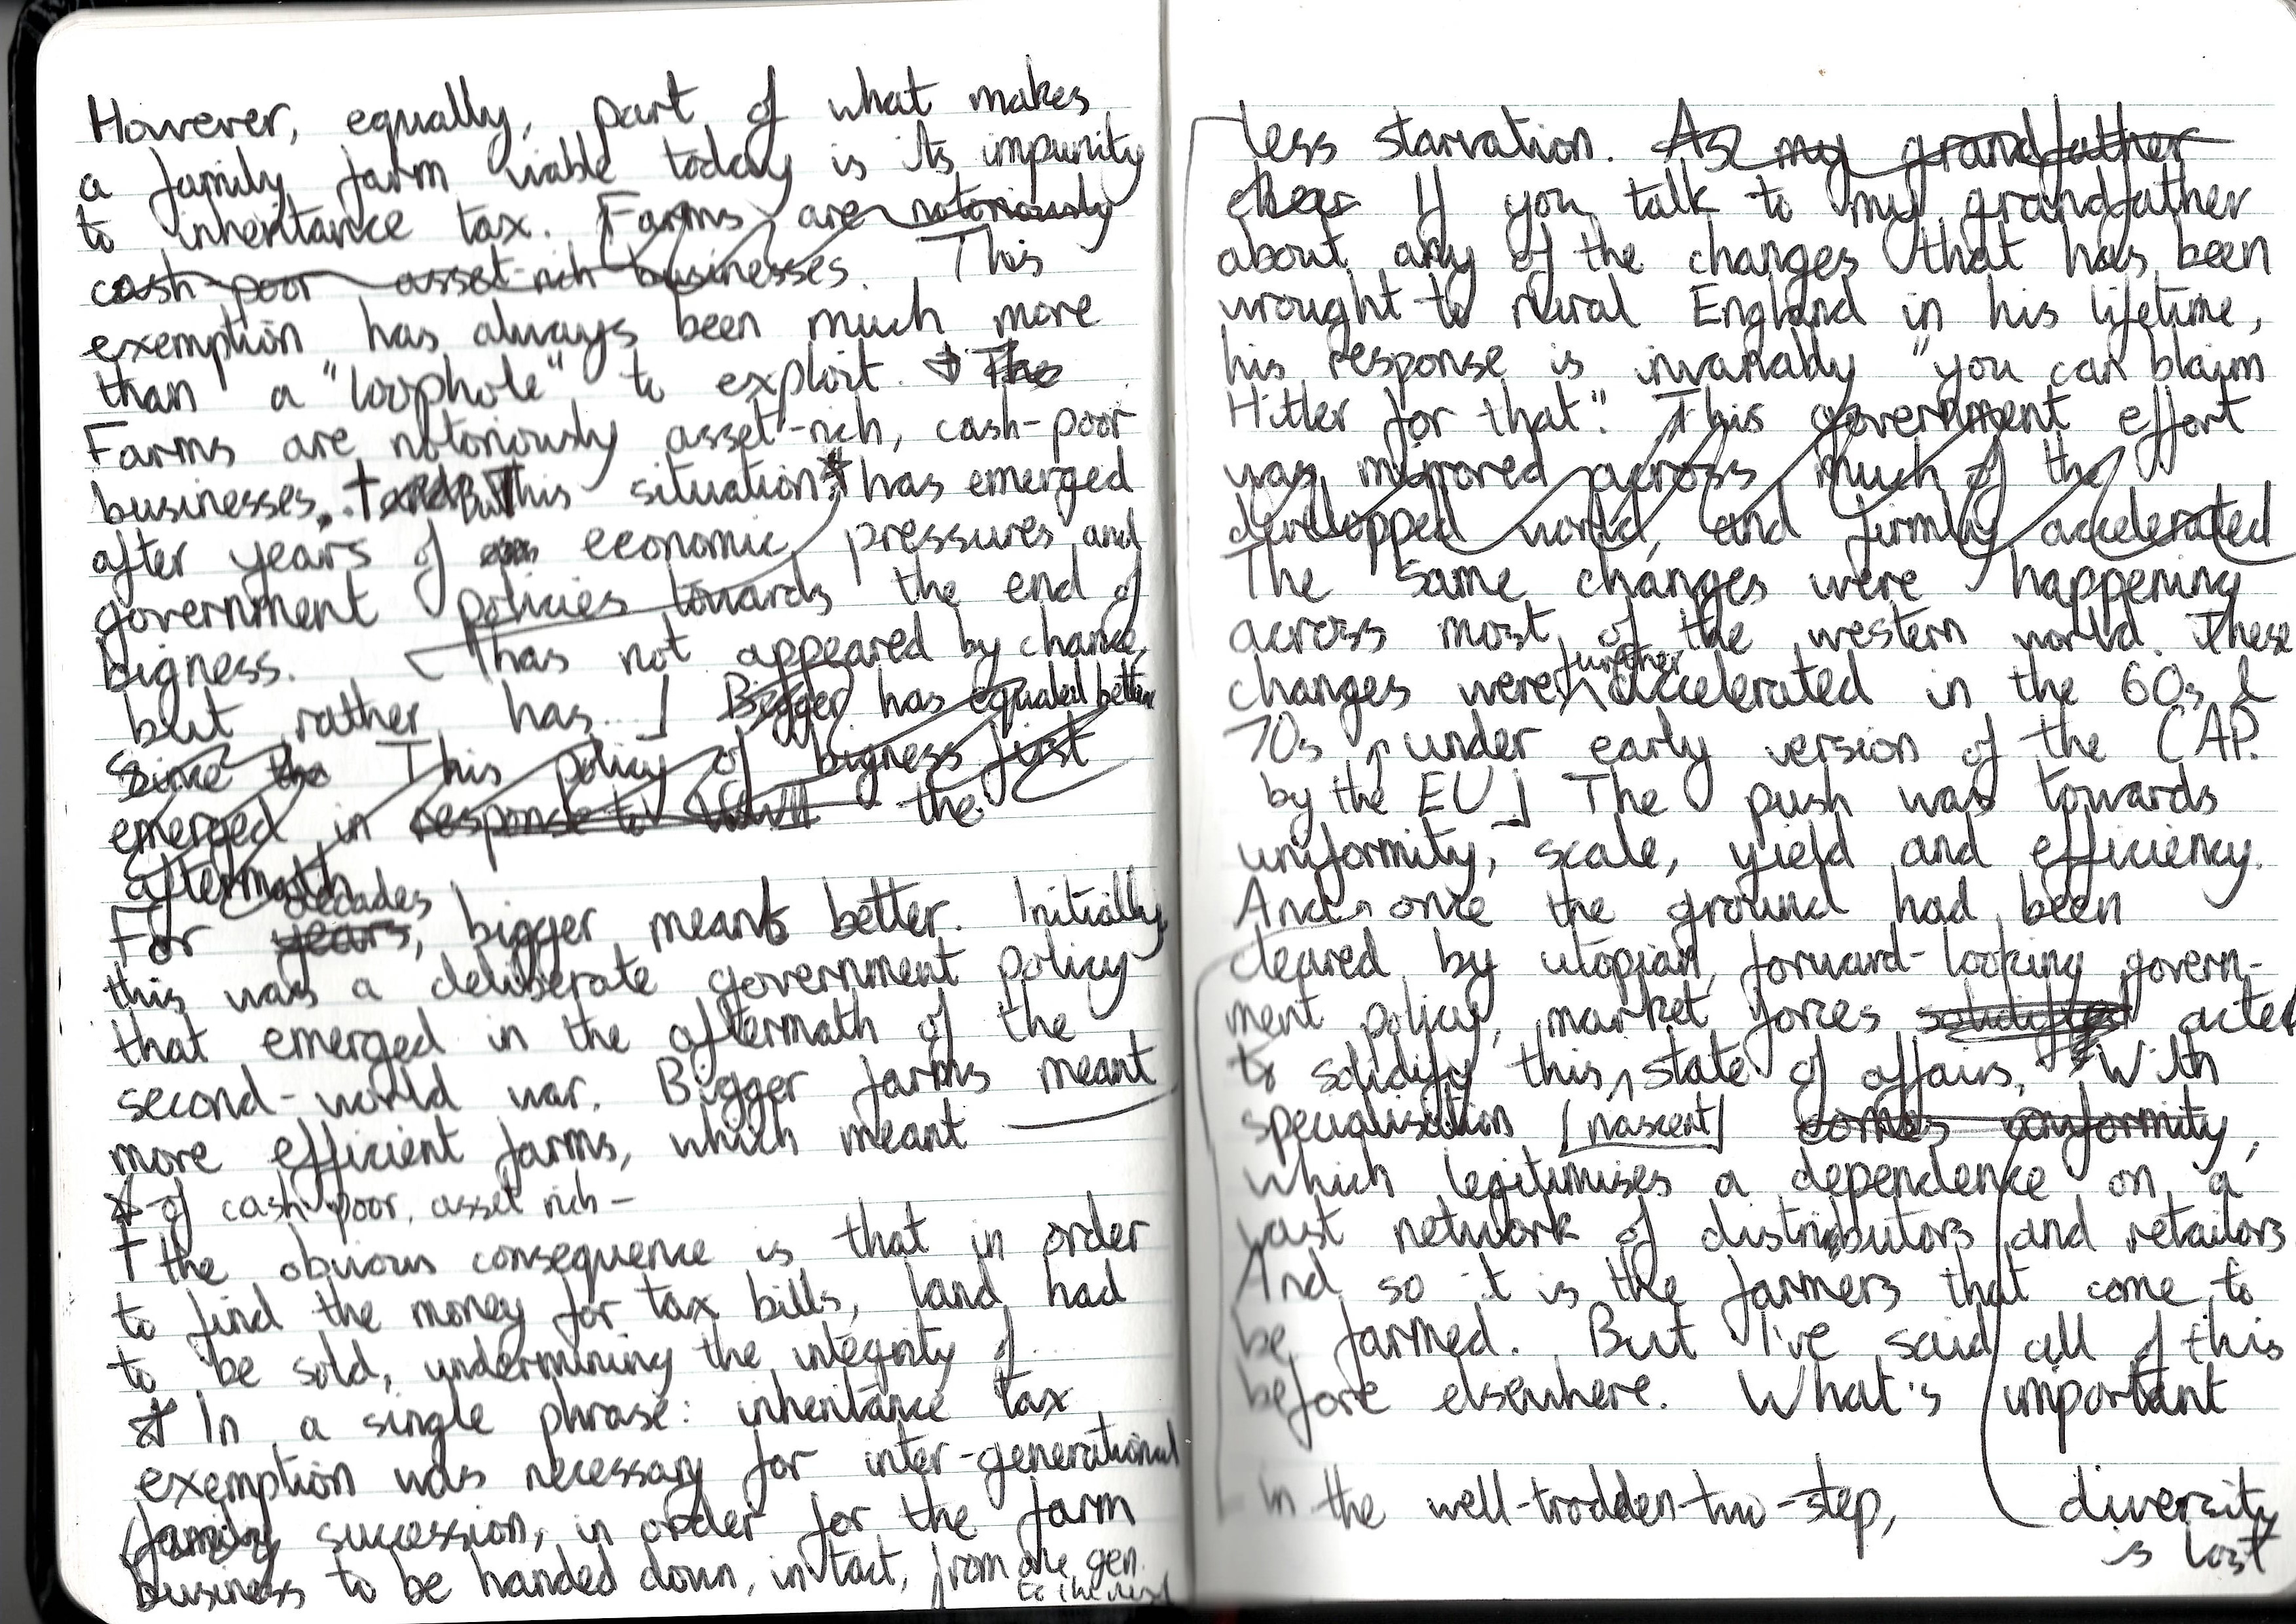 However, equally, part of what makes
a family farm viable today is its impunity
to inheritance tax. Farms are notoriously
cash-poor asset-rich businesses. This
exemption has always been much more
than a "loophole" to exploit. The
Farms are notoriously asset-rich, cash-poor
businesses. † But This situation* has emerged
after years of economic pressures and
government policies towards the end of
bigness. [has not appeared by chance,
but rather has...] Bigger has equaled better
Since the This policy of bigness first
emerged in response to WWII the
aftermath
decades
For years, bigger meant better. Initially
this was a deliberate government policy
that emerged in the aftermath of the
second-world war. Bigger farms meant
more efficient farms, which meant
* - of cash poor, asset rich -
† the obvious consequence is that in order
to find the money for tax bills, land had
to be sold, undermining the integrity of...
☆ In a single phrase: inheritance tax
exemption was necessary for inter-generational
family sucession, in order for the farm
business to be handed down, in tact, from one gen.
to the next
less starvation. As my grandfather
If you talk to my grandfather
about any of the changes that has been
wrought to rural England in his lifetime,
his response is invariably "you can blaim
Hitler for that". This government effort
was mirrored across much of the
developped world, and firmly accelerated
The same changes were happening
across most of the western world. These
further
changes were accelerated in the 60s &
70s under early version of the CAP.
by the EU] The push was towards
uniformity, scale, yield and efficiency.
And once the ground had been
cleared by utopian, forward-looking govern-
ment policy, market forces solidified acted
to solidify this state of affairs. With
specialisation [nascent] comes conformity,
which legitimises a dependence on a
vast network of distributors and retailors
And so it is the farmers that come to
be farmed. But I've said all of this
before elsewhere. What's important
in the well-trodden-two-step, diversity
is lost